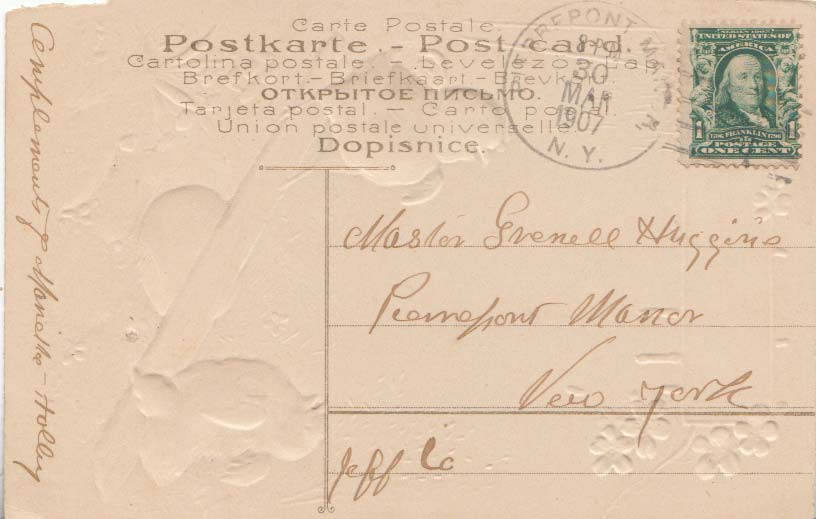 Carte Postale
Postkarte. - Post card.
Cartolina postale. - Levelezo-Lap
Brefkort.-Briefkaart.-Brevk
ОТКРЫТОЕ ПИСЬМО.
Tarjeta postal. - Carto postal.
Union postale universelle
Dopisnice.
PIERREPONT MANOR
8-P
30
MAR
1907
N. Y.
SERIES 1902
UNITED STATES OF
AMERICA
1706 FRANKLIN 1790
1 1
POSTAGE
ONE CENT
Master Grenell Huggins
Pierrepont Manor
New York
Jeff Co
Complements of Marietta Holley